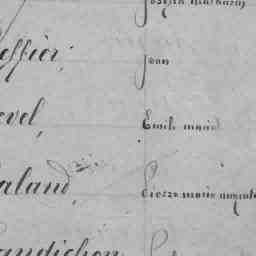 Joseph
effier, Jean
evel, Emile marie
aland, Pierre marie auguste
andichon